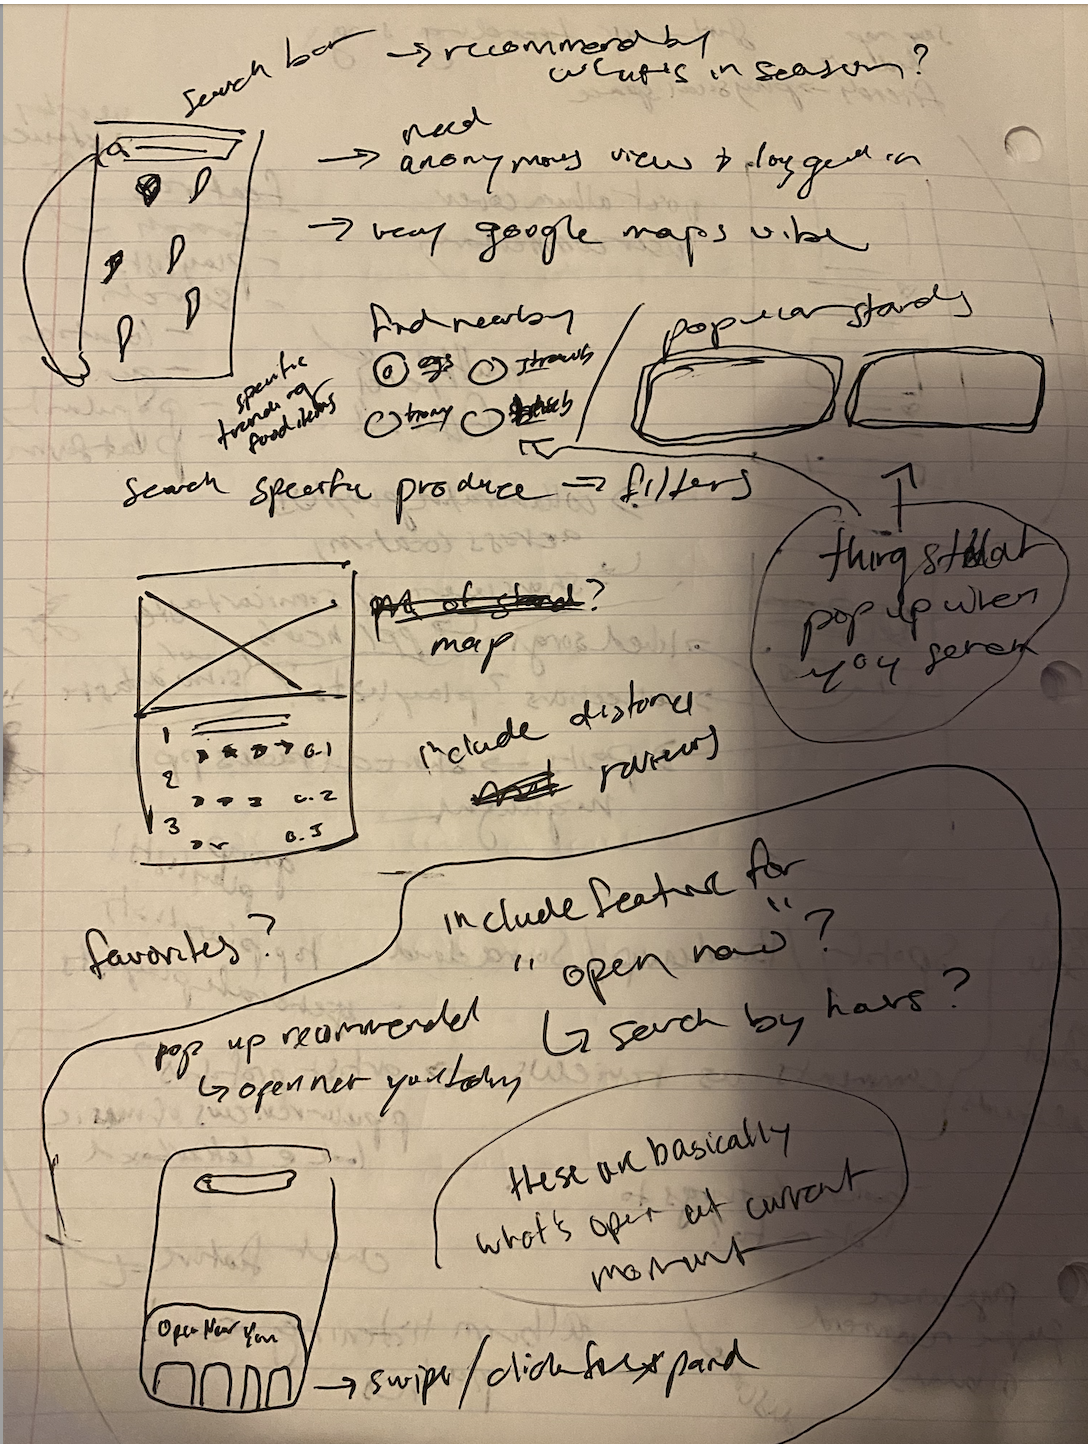 search bar → recommend by
what's in season?
need
→ anonymous view + logged in
→ very google maps vibe
find nearby
popular stands
eggs
strawb
honey
specific
trending
food items
search specific produce → filters
things that
pop up when
you search
?
map
include distance
reviews
1
0.1
2
0.2
3
0.3
favorites?
include feature for
"open now"?
↳ search by hours?
pop up recommended
↳ open near you today
these are basically
what's open at current
moment
Open Near You
→ swipe/click to expand